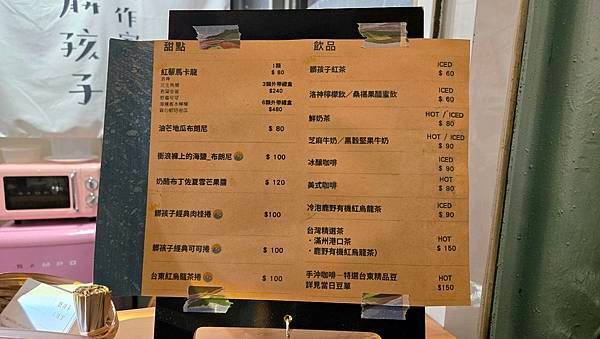 作家
髒孩子
甜點
紅藜馬卡龍
1顆
$ 90
3顆外帶禮盒
$240
6顆外帶禮盒
$480
油芒地瓜布朗尼
$ 80
衝浪褲上的海鹽_布朗尼
$ 100
奶酪布丁佐夏雪芒果醬
$ 120
髒孩子經典肉桂捲
$100
髒孩子經典可可捲
$ 100
台東紅烏龍茶捲
$ 100
飲品
髒孩子紅茶
ICED
$ 60
洛神檸檬飲／桑福果醋蜜飲
ICED
$ 60
鮮奶茶
HOT / ICED
$ 80
芝麻牛奶／黑穀堅果牛奶
HOT / ICED
$ 90
冰釀咖啡
ICED
$ 90
美式咖啡
HOT
$ 80
冷泡鹿野有機紅烏龍茶
ICED
$ 90
台灣精選茶
・滿州港口茶
・鹿野有機紅烏龍茶）
HOT
$ 150
手沖咖啡－特選台東精品豆
詳見當日豆單
HOT
$150